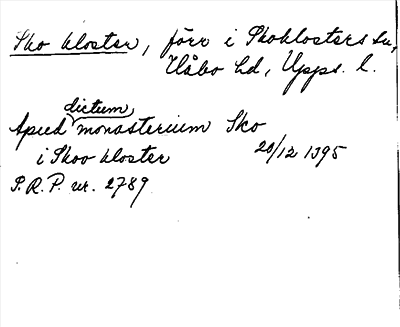 Sko kloster, förr i Skoklosters sn,
Håbo hd, Upps. l.
dictum
Apud monasterium Sko
i Skoo kloster 20/12 1395
S.R.P. nr. 2789